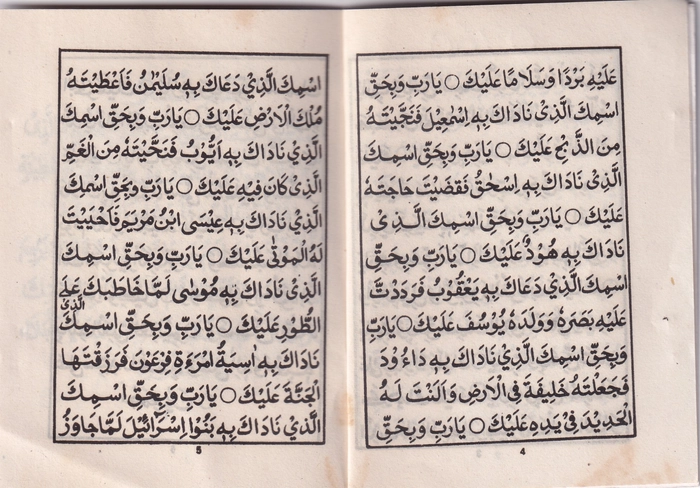 عَلَيْهِ بَرْدًا وَسَلَامًا عَلَيْكَ ○ يَارَبِّ وَبِحَقِّ
اسْمِكَ الَّذِىْ نَادَاكَ بِهٖ اِسْمٰعِيْلَ فَنَجَّيْتَهٗ
مِنَ الذَّبْحِ عَلَيْكَ ○ يَارَبِّ وَبِحَقِّ اسْمِكَ
الَّذِىْ نَادَاكَ بِهٖ اِسْحٰقُ فَقَضَيْتَ حَاجَتَهٗ
عَلَيْكَ ○ يَارَبِّ وَبِحَقِّ اسْمِكَ الَّذِىْ
نَادَاكَ بِهٖ هُوْدٌ عَلَيْكَ ○ يَارَبِّ وَبِحَقِّ
اسْمِكَ الَّذِيْ دَعَاكَ بِهٖ يَعْقُوْبُ فَرَدَدْتَّ
عَلَيْهِ بَصَرَهٗ وَوَلَدَهٗ يُوْسُفَ عَلَيْكَ ○ يَارَبِّ
وَبِحَقِّ اسْمِكَ الَّذِيْ نَادَاكَ بِهٖ دَاءُوْدَ
فَجَعَلْتَهٗ خَلِيْفَةً فِى الْاَرْضِ وَاَلَنْتَ لَهُ
الْحَدِيْدَ فِيْ يَدِهٖ عَلَيْكَ ○ يَارَبِّ وَبِحَقِّ
4
اسْمِكَ الَّذِيْ دَعَاكَ بِهٖ سُلَيْمٰنُ فَاَعْطَيْتَهٗ
مُلْكَ الْاَرْضِ عَلَيْكَ ○ يَارَبِّ وَبِحَقِّ اسْمِكَ
الَّذِيْ نَادَاكَ بِهٖ اَيُّوْبُ فَنَجَّيْتَهٗ مِنَ الْغَمِّ
الَّذِيْ كَانَ فِيْهِ عَلَيْكَ ○ يَارَبِّ وَبِحَقِّ اسْمِكَ
الَّذِيْ نَادَاكَ بِهٖ عِيْسَى ابْنُ مَرْيَمَ فَاَحْيَيْتَ
لَهُ الْمَوْتٰى عَلَيْكَ ○ يَارَبِّ وَبِحَقِّ اسْمِكَ
الَّذِىْ نَادَاكَ بِهٖ مُوْسٰى لَمَّا خَاطَبَكَ عَلَى
الطُّوْرِ عَلَيْكَ ○ يَارَبِّ وَبِحَقِّ اسْمِكَ الَّذِىْ
نَادَاكَ بِهٖ اٰسِيَةُ امْرَءَةِ فِرْعَوْنَ فَرَزَقْتَهَا
الْجَنَّةَ عَلَيْكَ ○ يَارَبِّ وَبِحَقِّ اسْمِكَ
الَّذِيْ نَادَاكَ بِهٖ بَنُوْا اِسْرَآئِيْلَ لَمَّا جَاوَزُ
5